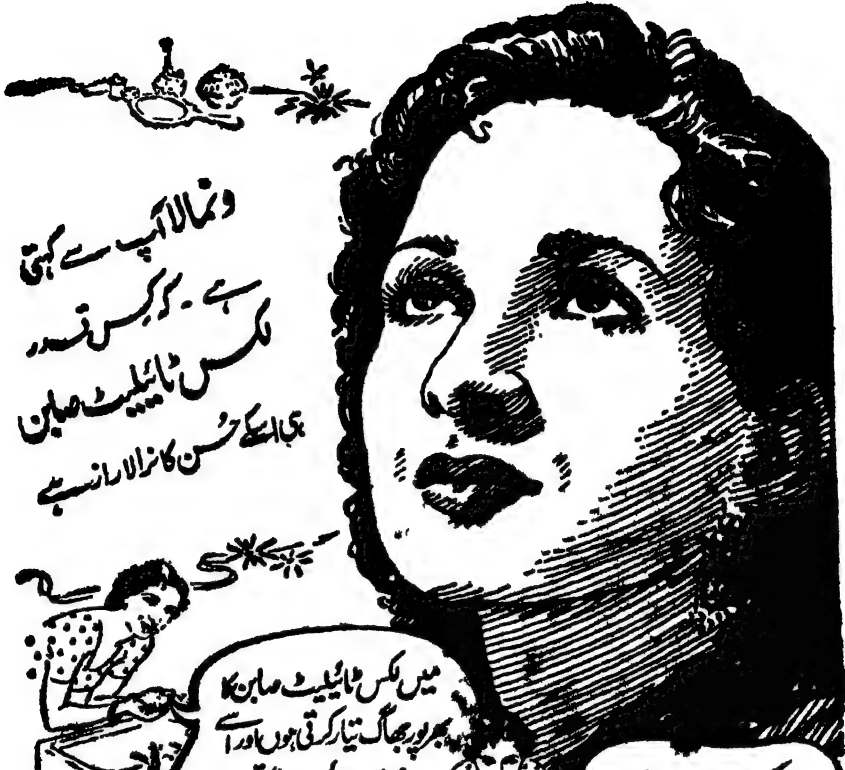 ونمالا آپ سے کہتی
ہے۔ کہ کس قدر
لکس ٹائیلیٹ صابن
ہی اسکے حُسن کا نرالا راز ہے
میں لکس ٹائیلیٹ صابن کا
بھرپور جھاگ تیار کرتی ہوں اور اسے